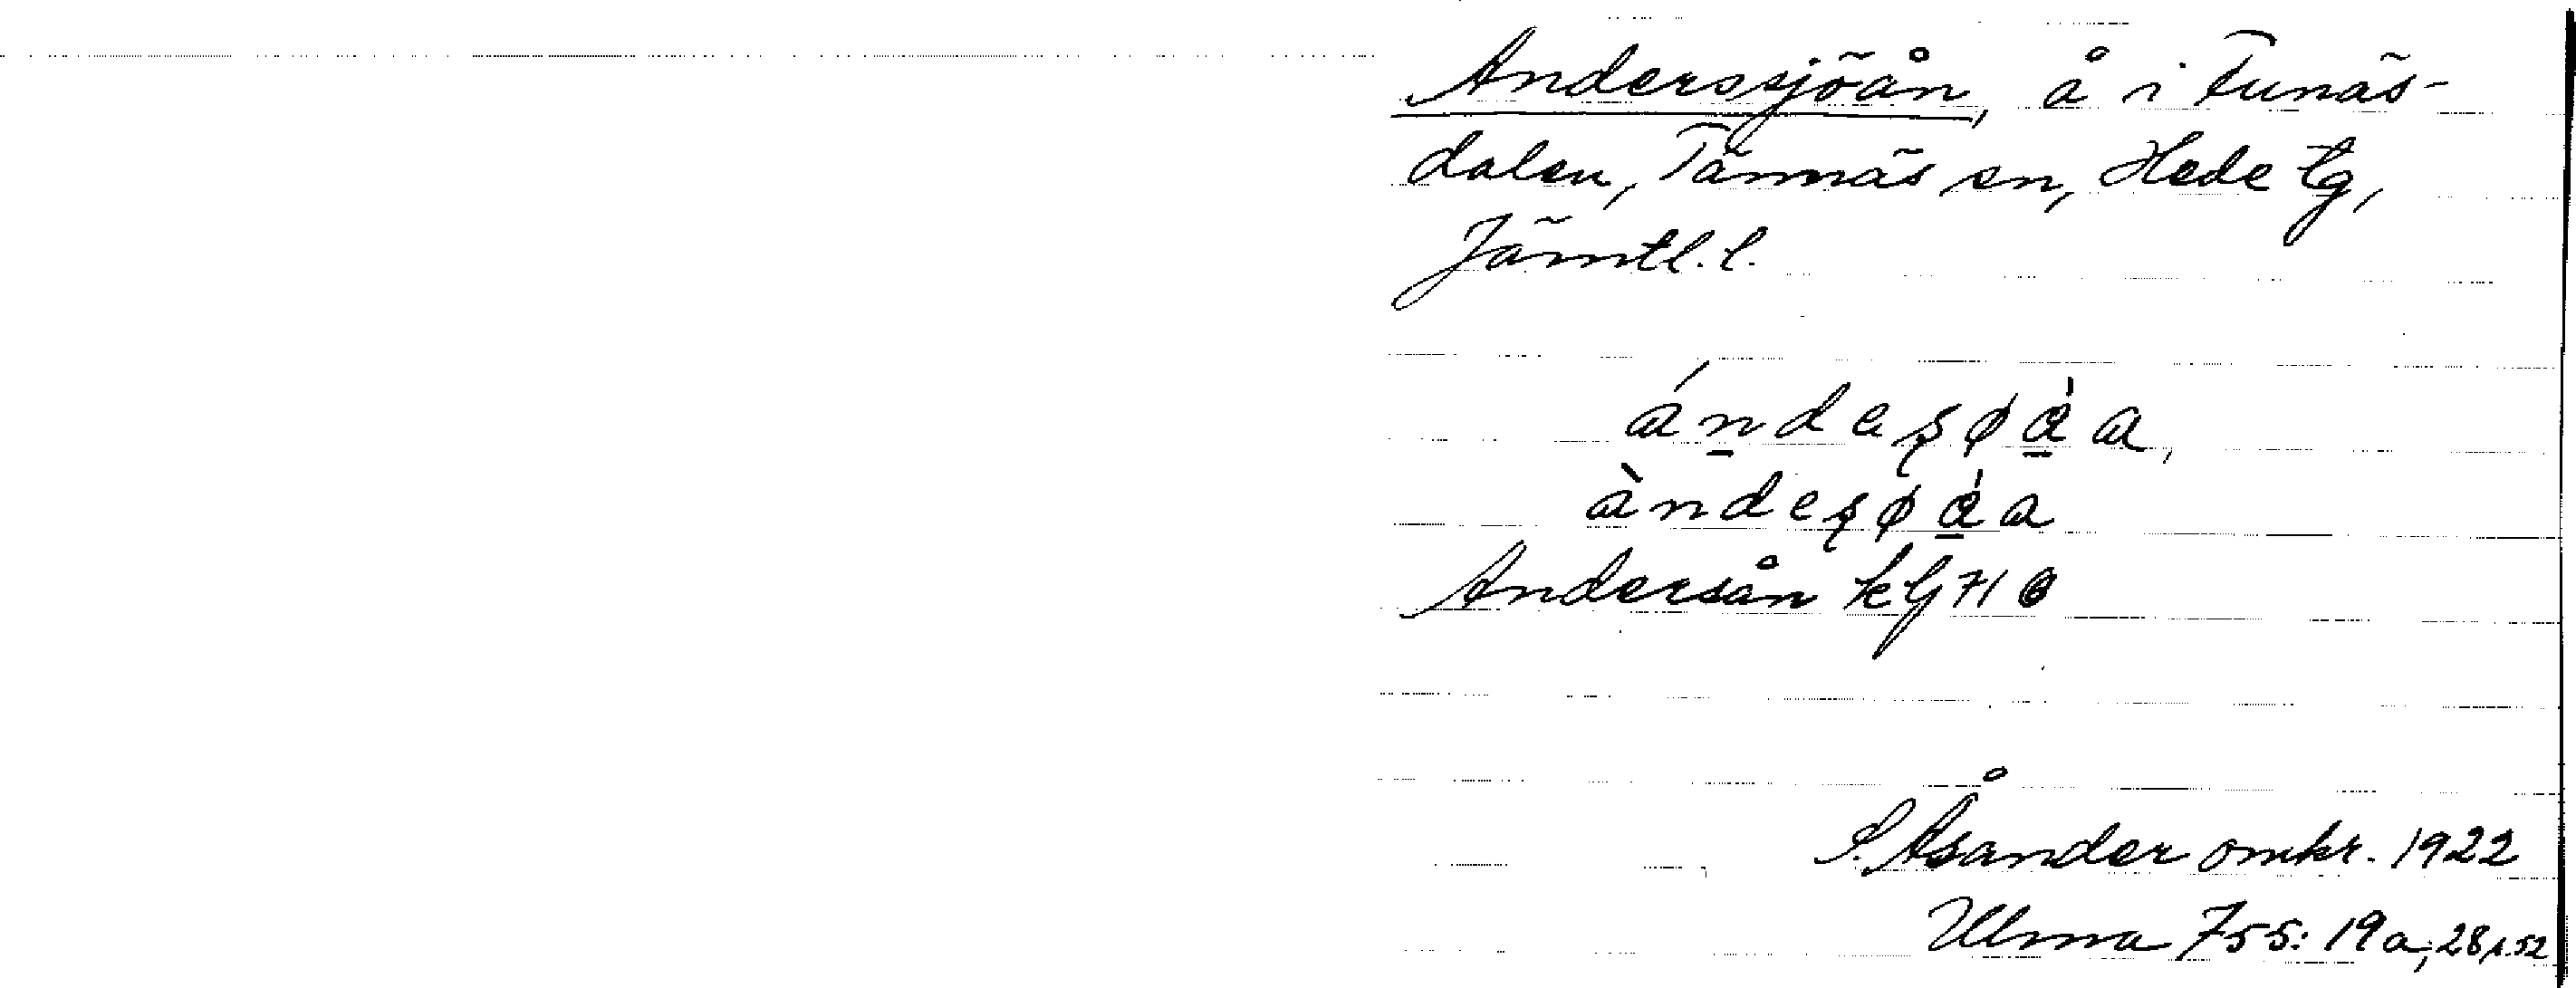 Anderssjöån, å i Funäs-
dalen, Tännäs sn, Hede tg,
Jämtl. l.
ándeʂøàa,
àndeʂøàa
Andersån 71
S. Åsander omkr. 1922
Ulma 755: 19a, 28 s. 52